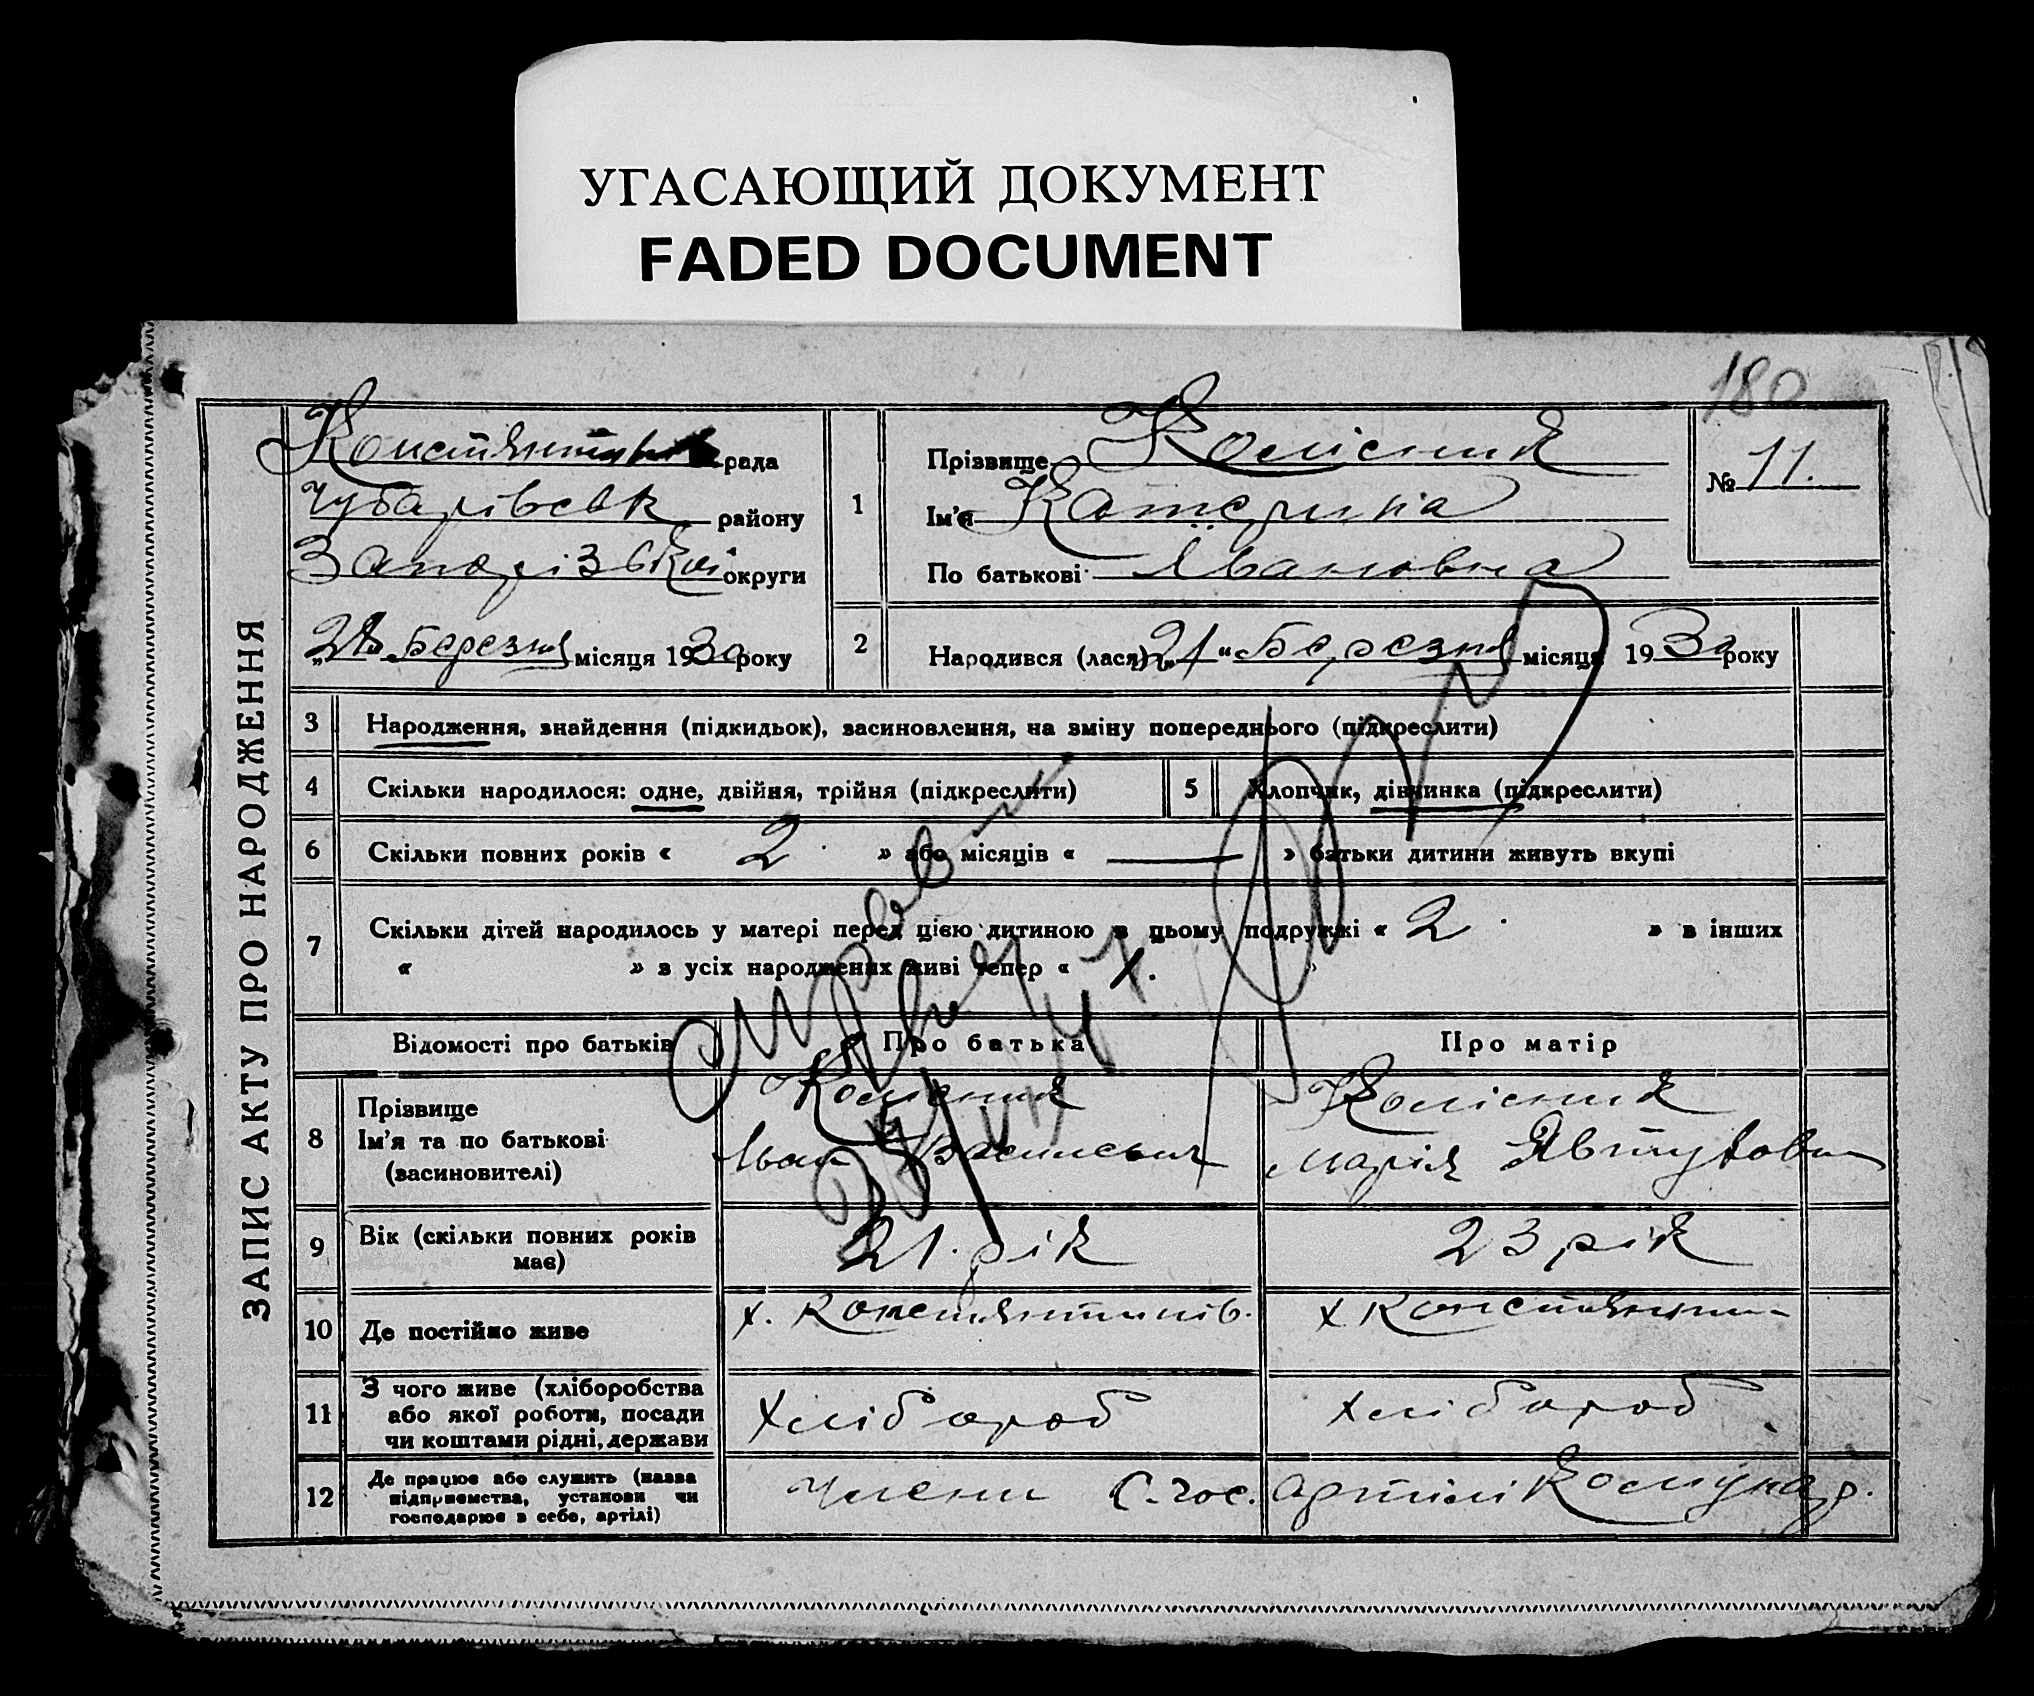 УГАСАЮЩИЙ ДОКУМЕНТ
FADED DOCUMENT
180
ЗАПИС АКТУ ПРО НАРОДЖЕННЯ
рада
Чубарівськ району
Запорізької округи
„28 Березня місяця 1930 року
1
Прізвище Колісник
Ім'я Катерина
По батькові Івановна
№ 11.
2
Народився (лася) „21“ Березня місяця 1930 року
3 Народження, знайдення (підкидьок), засиновлення, на зміну попереднього (підкреслити)
4 Скільки народилося: одне, двійня, трійня (підкреслити)
5 Хлопчик, дівчинка (підкреслити)
6 Скільки повних років « 2 » або місяців « — » батьки дитини живуть вкупі
7 Скільки дітей народилось у матері перед цією дитиною в цьому подружжі « 2 » в інших
« » в усіх народжених живі тепер « »
Відомості про батьків
Про батька
Про матір
8 Прізвище
Ім'я та по батькові
(засиновителі)
Колісник
Іван Василевич
Колісник
Марія
9 Вік (скільки повних років
має)
21. рік
23 рік
10 Де постійно живе
х. Констянтинів.
х Констянтин
11 З чого живе (хліборобства
або якої роботи, посади
чи коштами рідні, держави
Хлібороб
Хлібороб
12 Де працює або служить (назва
підприємства, установи чи
господарює в себе, артілі)
Члени С. гос. артілі